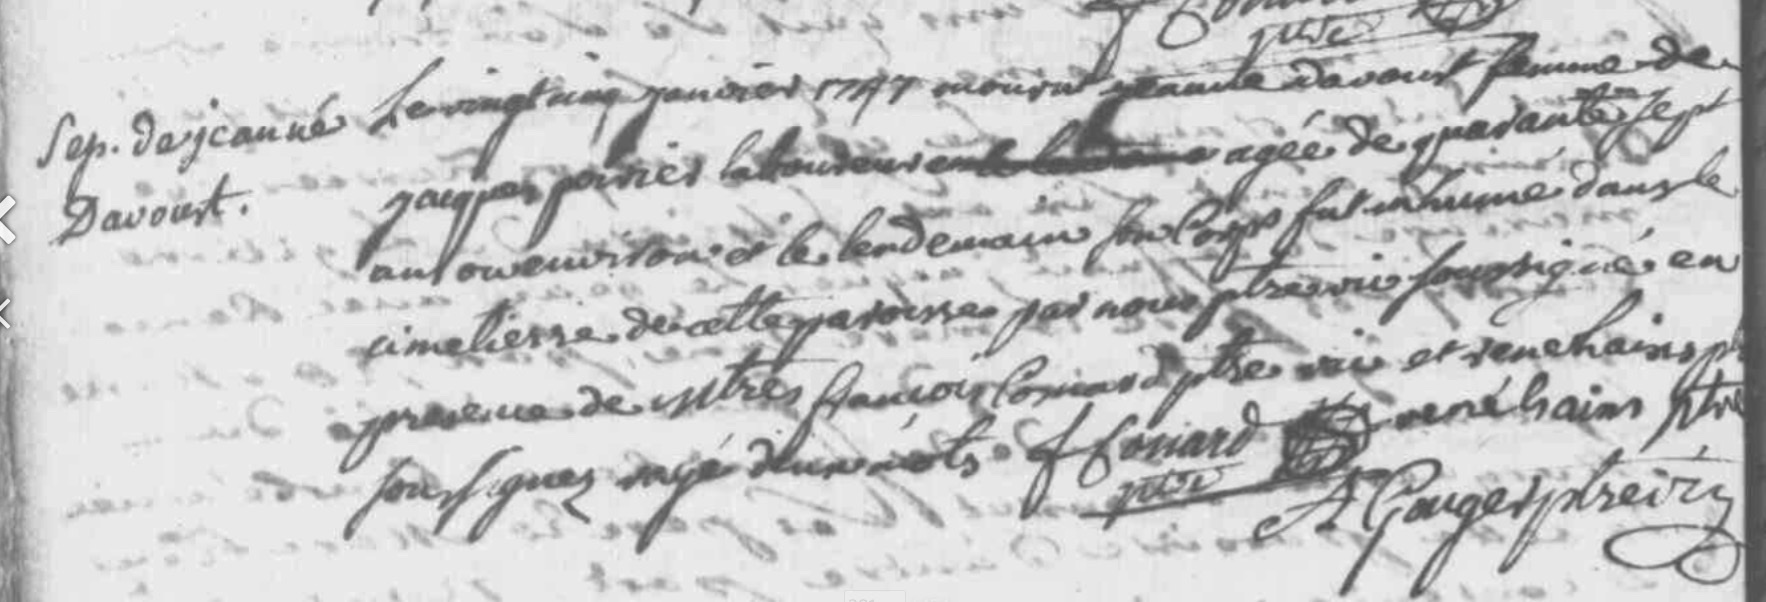 Sep. de jeanne
Davoust.
Le vingt cinq janvier 1747 mourut jeanne davoust femme de
jacques poirier laboureur agée de quarante sept
ans ou environ et le lendemain son Corps fut inhumé dans le
cimetierre de cette paroisse par nous ptre vic soussigné en
presence de Mtres françois Coniard ptre vic et rené hains ptre
soussignez rayé deux mots f Coniard rené hains ptre
ptre
A Gauger ptre vic